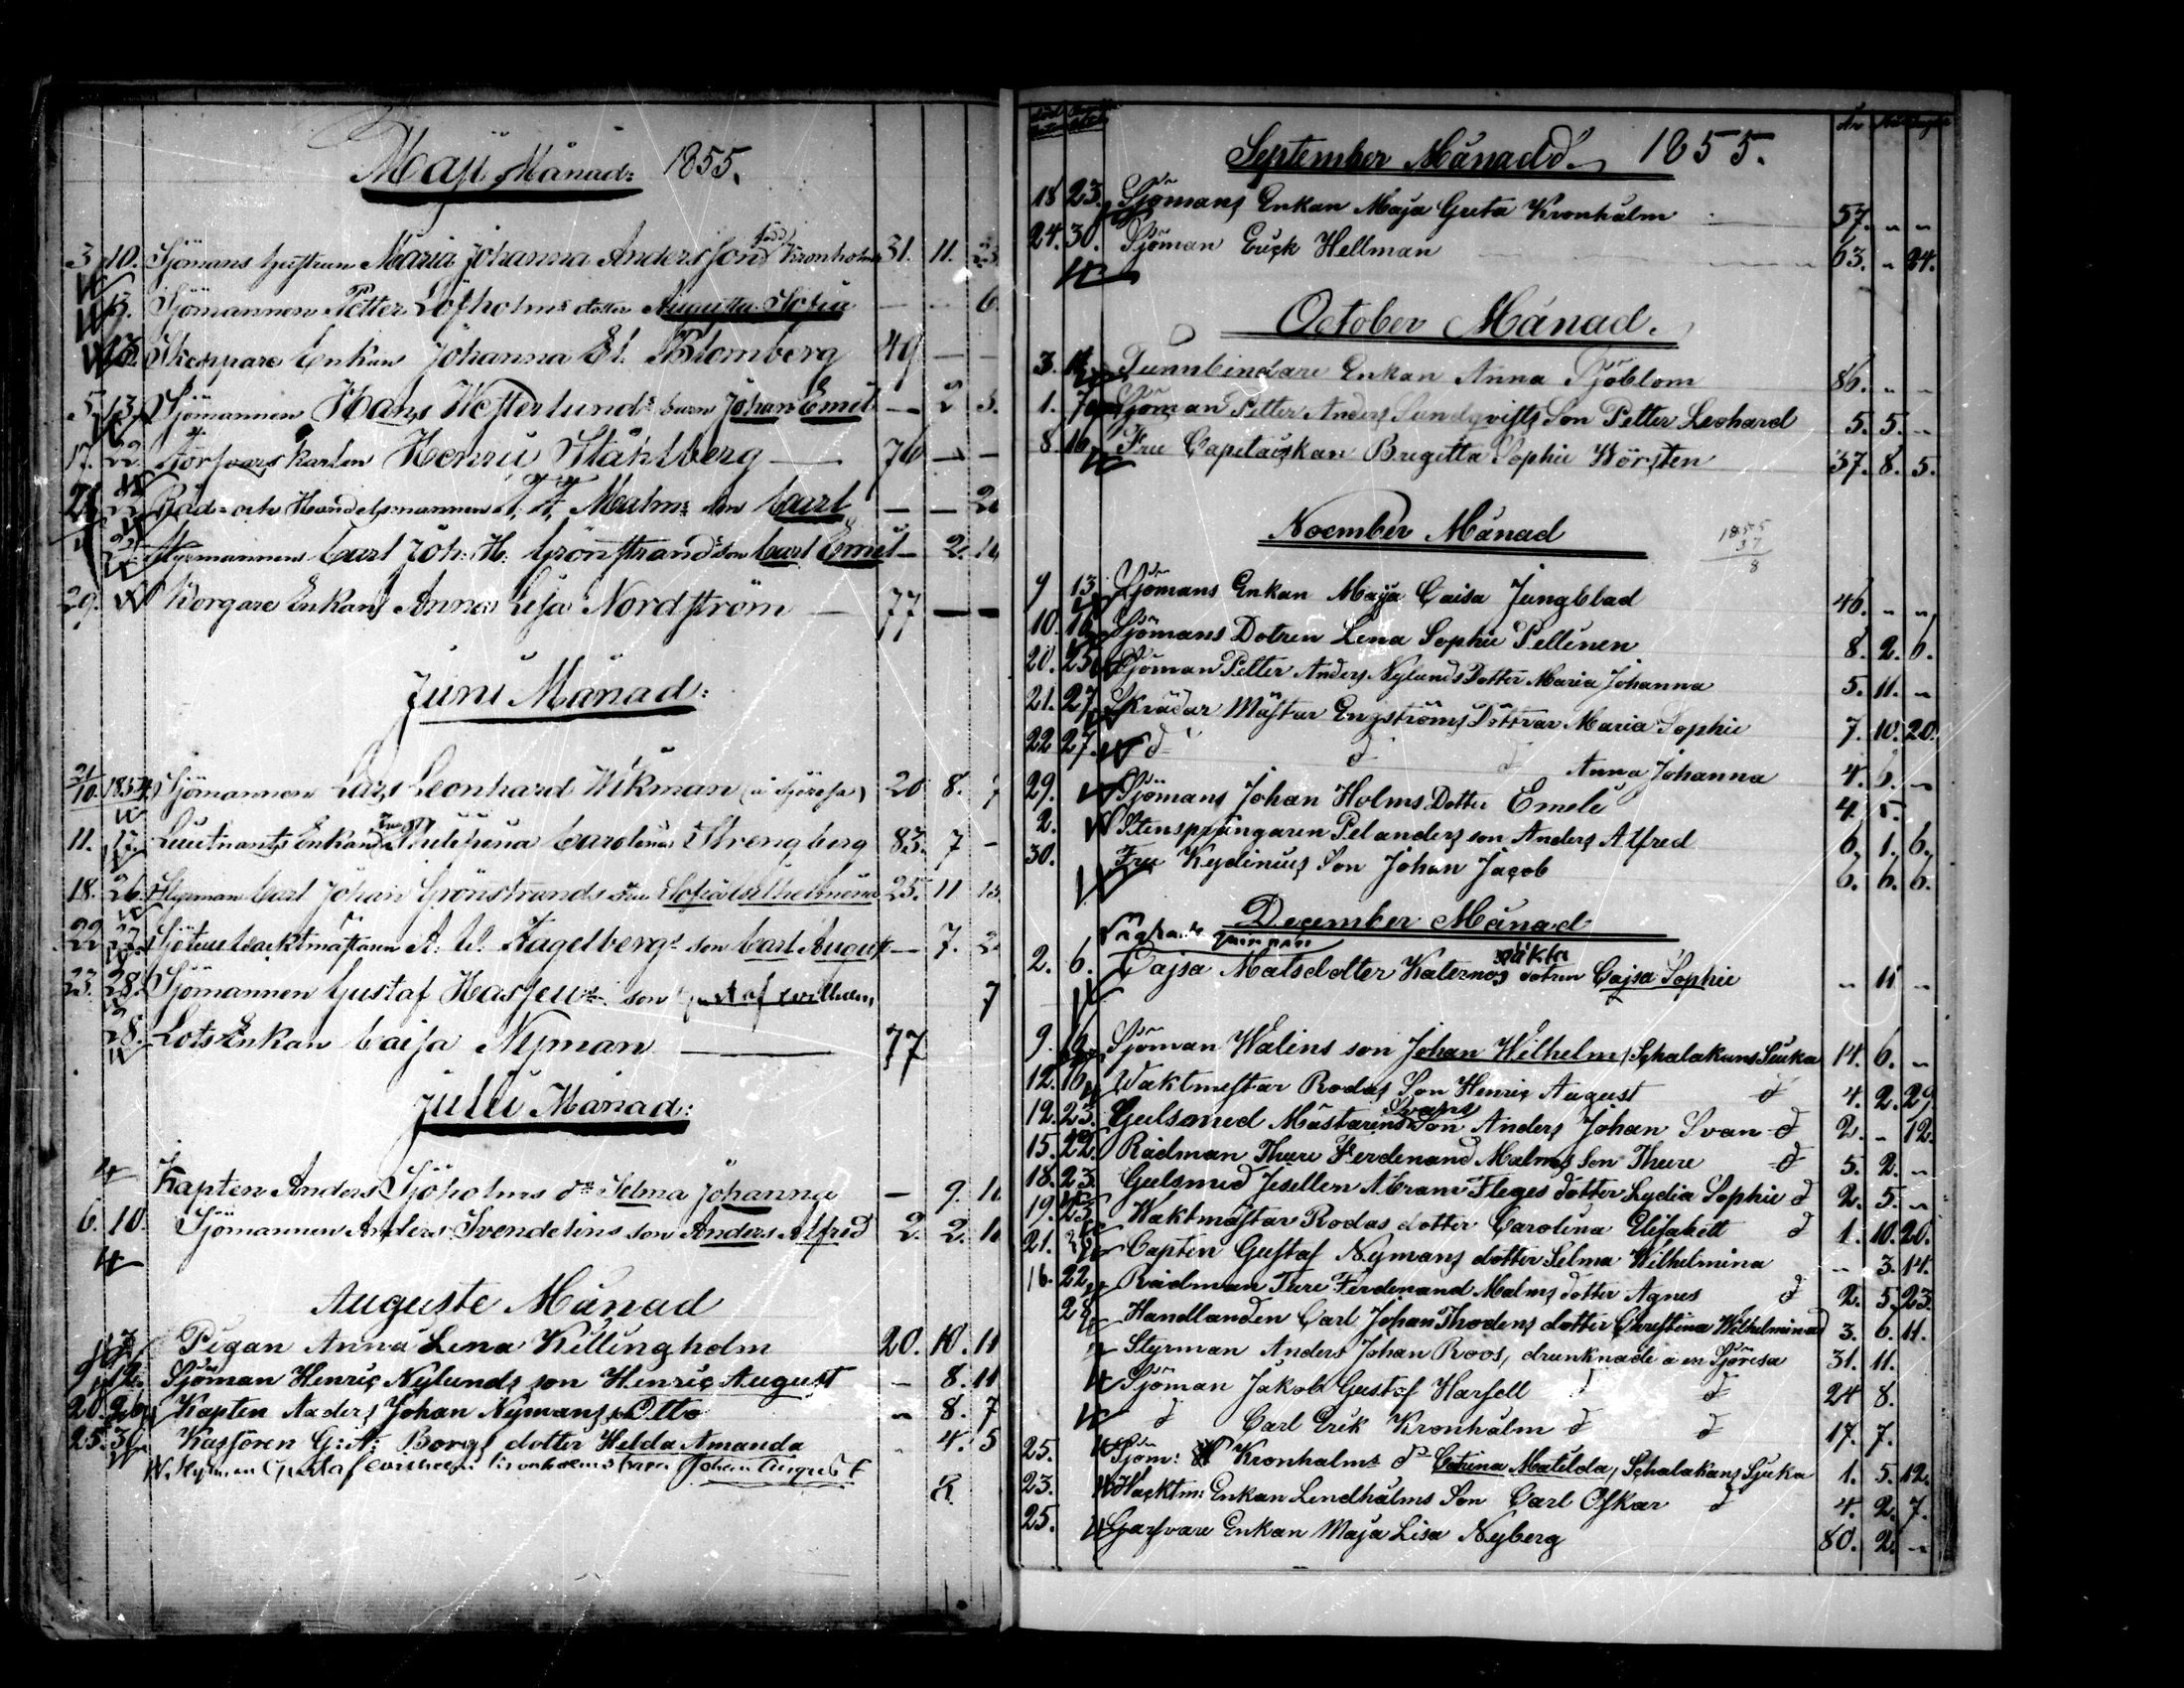 Maji Månad: 1855.
3. 10. Sjömans hustrun Maria Johanna Andersson född Kronholm 31. 11. 23.
13. Sjömannen Petter Löfholms dotter Augusta Sofia — — 6.
13. Skeppare Enkan Johanna El. Blomberg 49 — —
5. 13. Sjömannen Hans Westerlunds barn Johan Emil — 2 3.
17. 22. karlen Henric Ståhlberg — 76 — —
22 Råd- och Handelsmannen T. F. Malms son Carl — — 2
Styrmannen Carl Joh: H. Grönstrands son Carl Emil — 2. 14
29. Borgare Enkan Anna Lisa Nordström — 77 — —
Juni Månad:
21/10. 1854. Sjömannen Lars Leonhard Wikman (å sjöresa) 20 8. 7
11. 17. Lieutnants Enkan Carolina Strengberg 83. 7 -
18. 26. Styrman Carl Johan Grönstrands Sofia Wilhelmina 25. 11 15.
22 27. Sjötullwacktmästaren A. W. Fagelbergs son Carl August — 7. 2
23. 28. Sjömannen Gustaf son Gustaf Wilhelm 7
28. Lots Enkan Caisa Nyman — 77
Julii Månad:
4 Kapten Anders Sjöholms dr Selma Johanna — 9. 11
6. 10. Sjömannen Anders Svendelins son Anders Alfred 2. 2. 11
Auguste Månad
Pigan Anna Lena Killingholm 20. 10. 11
9 12. Sjöman Henric Nylunds son Henric August - 8. 11
20. 26. Kapten Anders Johan Nymans s. Otto „ 8. 7
25. 30. Kassören G: A: Borgs dotter Helda Amanda „ 4. 5
Gustaf Kronholms barn Johan August 3.
September Månad 1855.
18 23. Sjömans Enkan Maja Greta Kronhalm 57. „ „
24. 30. Sjöman Erick Hellman 63. „ 24.
October Månad.
3. Tunnbindare Enkan Anna Sjöblom 86. „ „
1. 7 Sjöman Petter Anders Sundqvists Son Petter Leohard 5. 5. „
8. 16. Fru Capetaiskan Bregitta Sophie Wörsten 37. 8. 5.
Noember Månad
1855
37
8
9 13. Sjömans Enkan Maja Caisa Jungblad 46. „ „
10. 16. Sjömans Dotren Lena Sophie Pellinen 8. 2. 6.
20. 25. Sjöman Petter Anders Nylunds Dotter Maria Johanna 5. 11. „
21. 27. Skrädar Mästar Engströms Döttrar Maria Sophie 7. 10. 20.
22 27. d d d Anna Johanna 4. 6. „
29. Sjömans Johan Holms Dotter Emele 4. 5.
2. Stensprängaren Pelanders son Anders Alfred 6. 1. 6.
30. Fru Kydinius Son Johan Jacob 6. 6. 6.
December Månad
2. 6. Cajsa Matsdotter Katernos oäkta dotren Cajsa Sophie „ 11 „
9. 16. Sjöman Walins son Johan Wilhelm, Schalakans Siuka 14. 6. „
12. 16. Waktmestar Rodas Son Henric August d 4. 2. 29.
12. 23. Gulsmed Mästarens Svans Son Anders Johan Svan d 2. „ 12.
15. 22. Rådman Thure Ferdenand Malms Son Thure d 5. 2. „
18. 23. Gulsmed Jesellen Abram Fleges dotter Lydia Sophie d 2. 5. „
19. 25. Waktmästar Rodas dotter Carolina Elisabett d 1. 10. 20.
21. Capten Gustaf Nymans dotter Selma Wilhelmina „ 3. 14.
16. 22. Rådman Ture Ferdinand Malms dotter Agnes d 2. 5. 23.
28. Handlanden Carl Johan Thodens dotter Christina Wilhelmina d 3. 6. 11.
Styrman Anders Johan Roos, drunknade å en Sjöresa 31. 11.
Sjöman Jakob Gustaf Harsell d d 24 8.
d Carl Erik Kronhalm d d 17. 7.
25. Sjöm: Kronhalms dr Catrina Matilda, Schalakans Sjuka 1. 5. 12.
23. Wacktm: Enkan Lendhalms Son Carl Oskar d 4. 2. 7.
25. Garfvare Enkan Maja Lisa Nyberg 80. 2. „